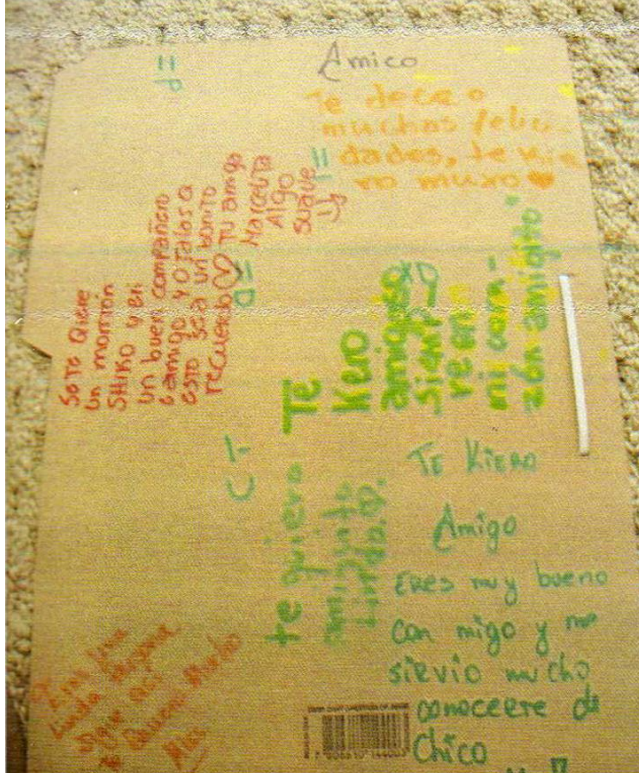 Amico
Te deceo
muchas felici-
dades, te kie
ro muxo
Sote Qiere
un montón
SHIKO y eri
un buen compañero
y amigo y OTALOS a
esto sea un bonito
recuerdo Tu amiga
Marcelita
Algo
suave
Te
Kero
amiguito
siempre
re en
mi cora-
zón amigito
te quiero
amiguito
lindo.
Te Kiero
Amigo
Eres muy bueno
con migo y me
sirvio mucho
conocerte de
Chico
Eres una
Linda persona
sigue asi
Te Quiero Mucho